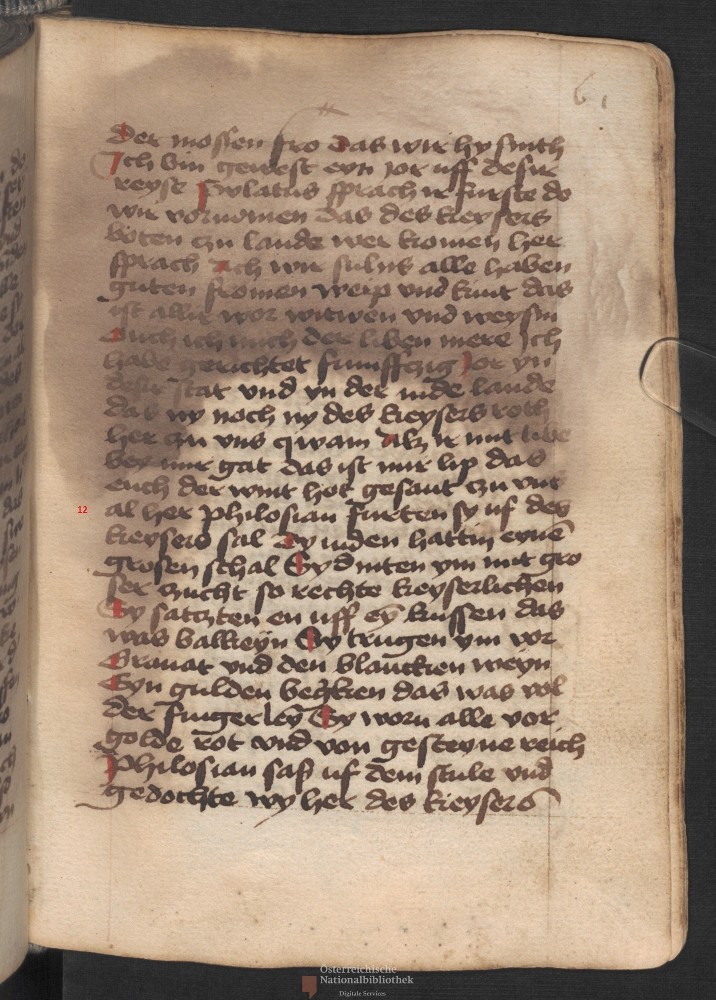 61
der mossen fro das wir hy sinth
Ich bin gewest eyn jor uff desir
reyse Pylatus sprach ir furste do
wir vornomen das des keysers
boten czu lande wer komen her
sprach Ach wir sulns alle haben
guten fromen werp und kunt das
ist allir wor witwen und weysin
Ouch ich mich der liben mere Ich
habe gerichtet fumffczig Jor yn
desir stat und yn der iude lande
das ny noch ny des keysers roth
her czu uns qwam Alz ir mit
bey mir gat das ist mir lip das
euch der wint hot gesant czu uns
12
al her philosian furten sy uf des
keysers sal Dy iuden hattin eynē
grosen schal Sy dinten ym mit gro
ser zucht so rechte keyserlichen
Sy satczten en uff eȳ kussen das
was balkeyn Sy trugen ym vor
Granat und den blancken weyn
Eyn gulden becken das was vol
der fingerleȳ Sy worn alle vor
golde rot und von gesteyne reich
Philosian saß uf dem stule und
gedochte wy her des keysers
Österreichische
Nationalbibliothek
Digitale Services